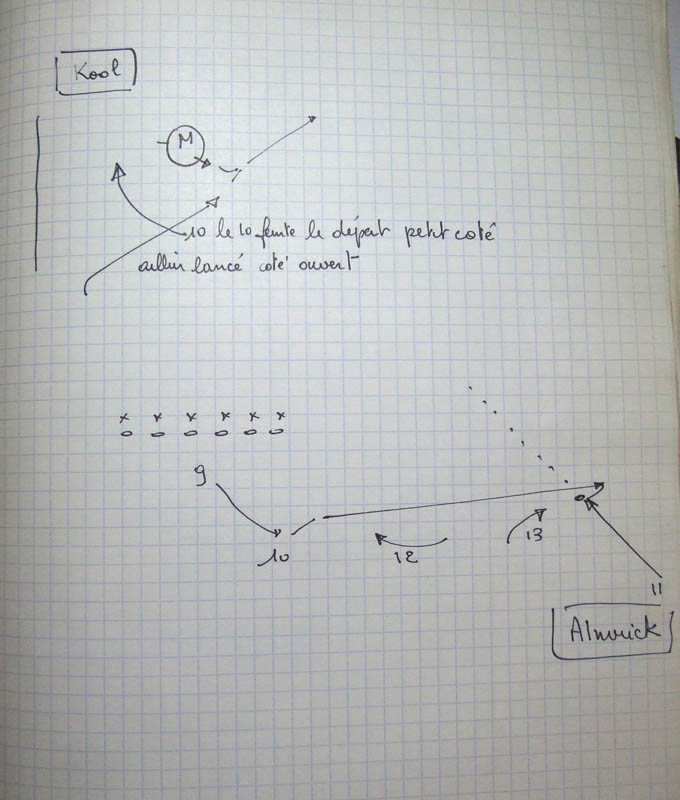 Kool
M
10 le 10 feinte le départ petit coté
lancé coté ouvert
x x x x x x
o o o o o o
9
10
12
13
11
Almerick